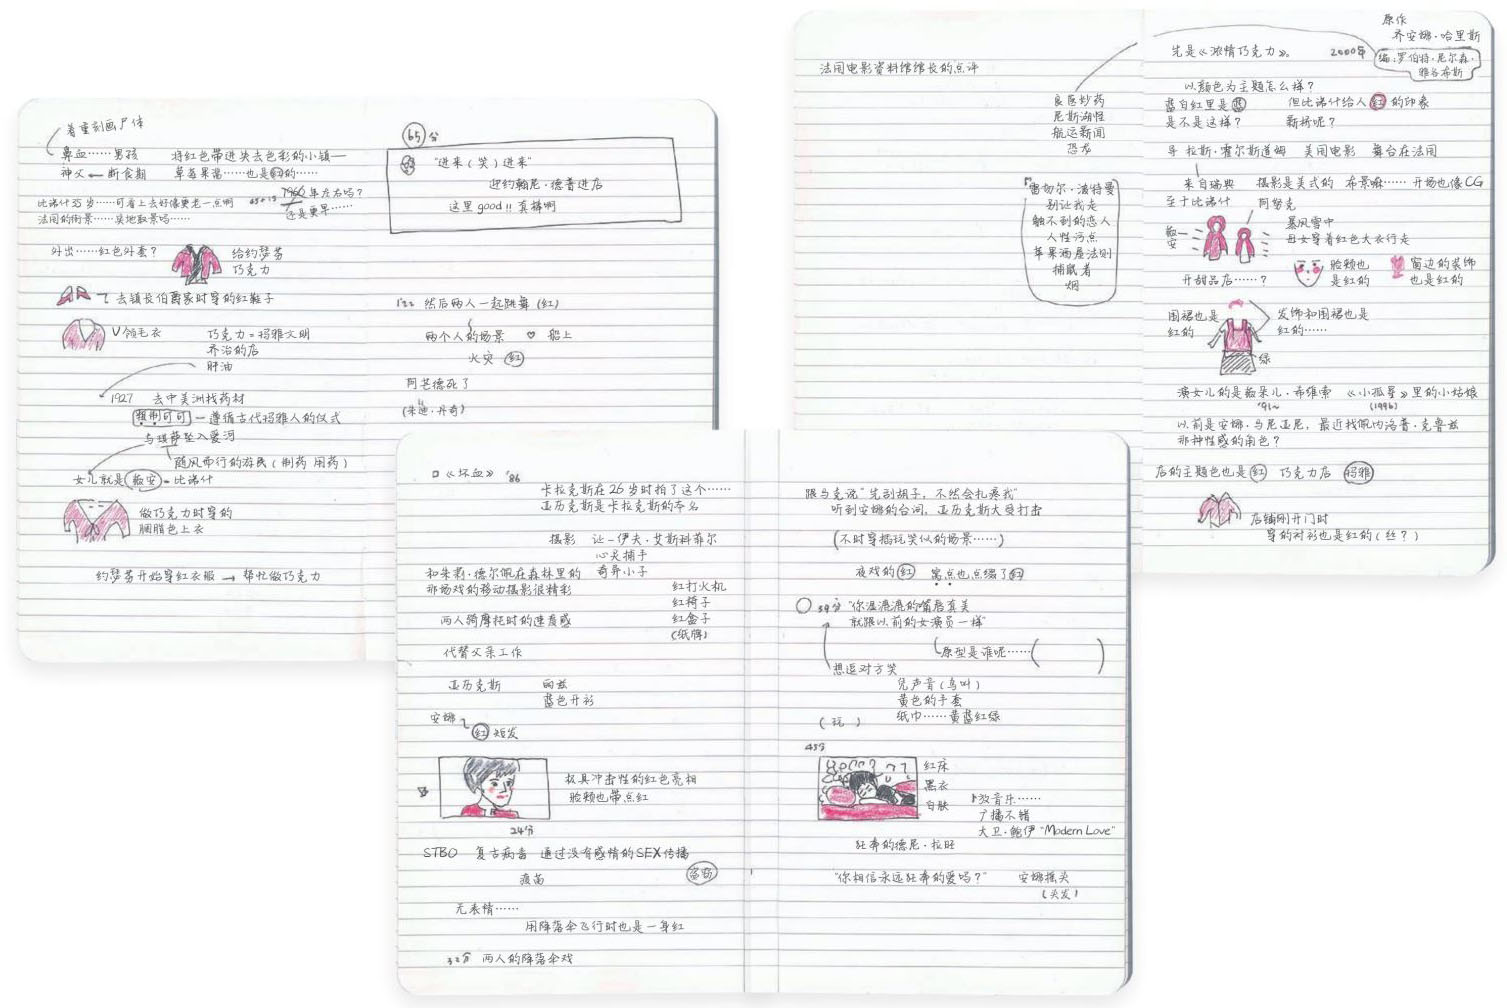 法国电影资料馆馆长的点评
良医妙药
尼斯湖怪
航运新闻
恐龙
雷切尔·波特曼
别让我走
触不到的恋人
人性污点
苹果酒屋法则
捕鼠者
烟
原作
乔安娜·哈里斯
先是《浓情巧克力》。 2000年
编:罗伯特·尼尔森·
雅各布斯
以颜色为主题怎么样?
蓝白红里是蓝 但比诺什给人红的印象
是不是这样? 新桥呢?
导 拉斯·霍尔斯道姆 美国电影 舞台在法国
来自瑞典 摄影是美式的 布景嘛…… 开场也像CG
至于比诺什 阿努克
薇安
暴风雪中
母女穿着红色大衣行走
开甜品店……?
脸颊也
是红的
窗边的装饰
也是红的
围裙也是
红的
发饰和围裙也是
红的……
绿
演女儿的是薇朵儿·希维索 《小孤星》里的小姑娘
'91~ (1996)
以前是安娜·马尼亚尼,最近找佩内洛普·克鲁兹
那种性感的角色?
店的主题色也是红 巧克力店 玛雅
店铺刚开门时
穿的衬衫也是红的(丝?)
着重刻画尸体
鼻血……男孩 将红色带进失去色彩的小镇—
神父←断食期 草莓果酱……也是红的……
比诺什35岁……可看上去好像更老一点啊
法国的街景……实地取景吗……
1960年左右吗?
还是更早……
外出……红色外套?
给约瑟芬
巧克力
去镇长伯爵家时穿的红鞋子
V领毛衣
巧克力=玛雅文明
乔治的店
肝油
1927 去中美洲找药材
想制可可—遵循古代玛雅人的仪式
与琪萨坠入爱河
随风而行的游民(制药 用药)
女儿就是薇安=比诺什
做巧克力时穿的
胭脂色上衣
约瑟芬开始穿红衣服→帮忙做巧克力
65分
“进来(笑)进来”
迎约翰尼·德普进店
这里good!!真棒啊
1:22 然后两人一起跳舞(红)
两个人的场景 ♡ 船上
火灾 红
阿芒德死了
(朱迪·丹奇)
□《坏血》 '86
卡拉克斯在26岁时拍了这个……
亚历克斯是卡拉克斯的本名
摄影 让-伊夫·艾斯科菲尔
心灵捕手
奇异小子
和朱莉·德尔佩在森林里的
那场戏的移动摄影很精彩
红打火机
红椅子
红盒子
(纸牌)
两人骑摩托时的速度感
代替父亲工作
亚历克斯 雨兹
蓝色开衫
安娜
红 短发
极具冲击性的红色亮相
脸颊也带点红
24分
STBO 复古病毒 通过没有感情的SEX传播
疫苗
无表情……
用降落伞飞行时也是一身红
32分 两人的降落伞戏
跟马克说“先刮胡子,不然会扎疼我”
听到安娜的台词,亚历克斯大受打击
(不时穿插玩笑似的场景……)
夜戏的红 窝点也点缀了红
39分 “你湿漉漉的嘴唇真美
就跟以前的女演员一样”
原型是谁呢……( )
想逗对方笑
凭声音(鸟叫)
黄色的手套
(玩) 纸巾……黄蓝红绿
45分
红床
黑衣
白肤
放音乐……
广播不错
大卫·鲍伊“Modern Love”
狂奔的德尼·拉旺
“你相信永远狂奔的爱吗?” 安娜摇头
(头发)